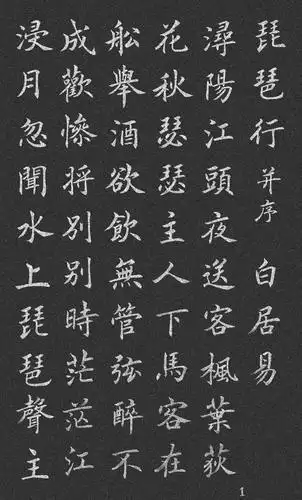 琵琶行并序 白居易
潯陽江頭夜送客楓葉荻
花秋瑟瑟主人下馬客在
船舉酒欲飲無管弦醉不
成歡慘將別別時茫茫江
浸月忽聞水上琵琶聲主
1